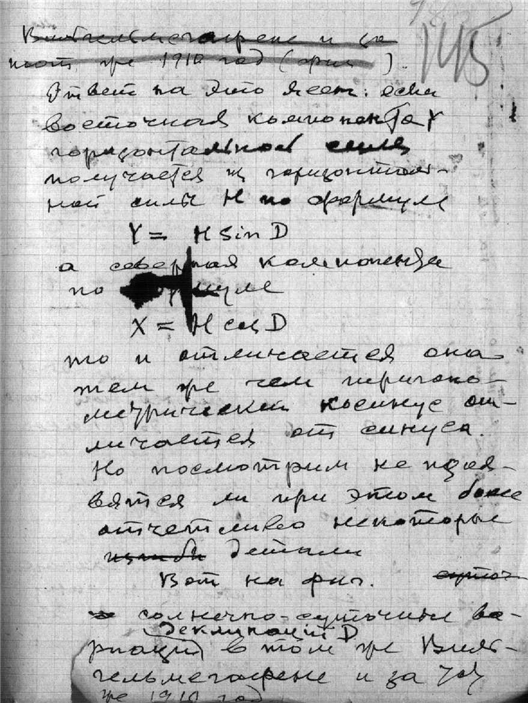 145
Вильгельмсгафене и за
тот же 1910 год (фиг ).
Ответ на это ясен: если
восточная компонента Y
горизонтальной силы
получается из горизонталь-
ной силы H по формуле
Y = H sin D
а северная компонента
по формуле
X = H cos D
то и отличается она
тем же чем тригоно-
метрический косинус от-
личается от синуса.
Но посмотрим не прояв-
вятся ли при этом более
отчетливо некоторые
детали
Вот на фиг. суточ
солнечно-суточные ва-
деклинации D
риации в том же Виль-
гельмсгафене и за тот
же 1910 год